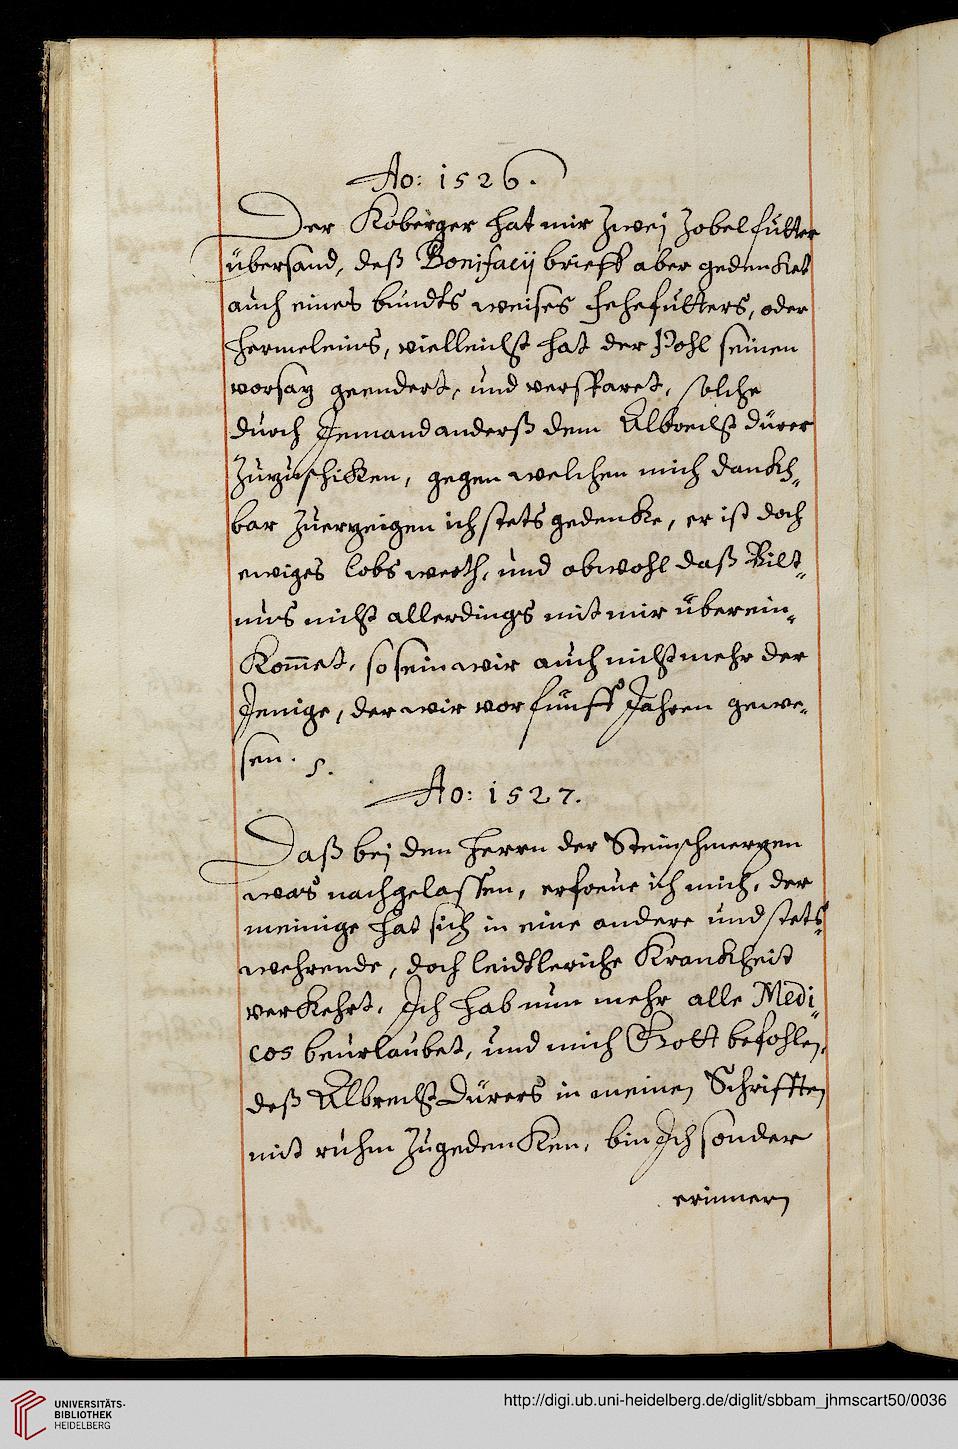 Ao: 1526.
Der Koberger hat mir zwej Zobelfütter
übersand, deß Bonifacij brieff aber gedencket
auch eines bundts weises Fehefutters, oder
Hermeleins, vielleicht hat der Pohl seinen
vorsaz geendert, und versparet, solche
durch Jemand anderß dem Albrecht Dürer
Zuzuschicken, gegen welchen mich danckh„
bar Zuerzeigen ich stets gedencke, er ist doch
ewiges lobs werth, und obwohl daß Bilt„
nus nicht allerdings mit mir überein„
Kom̅et, so sein wir auch nicht mehr der
Jenige, der wir vor fünff Jahren gewe„
sen. 5.
Ao: 1527.
Daß bej den Herrn der Steinschmerzen
was nachgelassen, erfreue ich mich, der
meinige hat sich in eine andere und stets„
wehrende, doch leidtleriche Kranckheit
verkehrt, Ich hab nun mehr alle Medi„
cos beurlaubet, und mich Gott befohlen,
deß Albrecht Dürers in meinen Schrifften
mit ruhm Zugedencken, bin Ich sonder
erinnern
UNIVERSITÄTS-
BIBLIOTHEK
HEIDELBERG
http://digi.ub.uni-heidelberg.de/diglit/sbbam_jhmscart50/0036